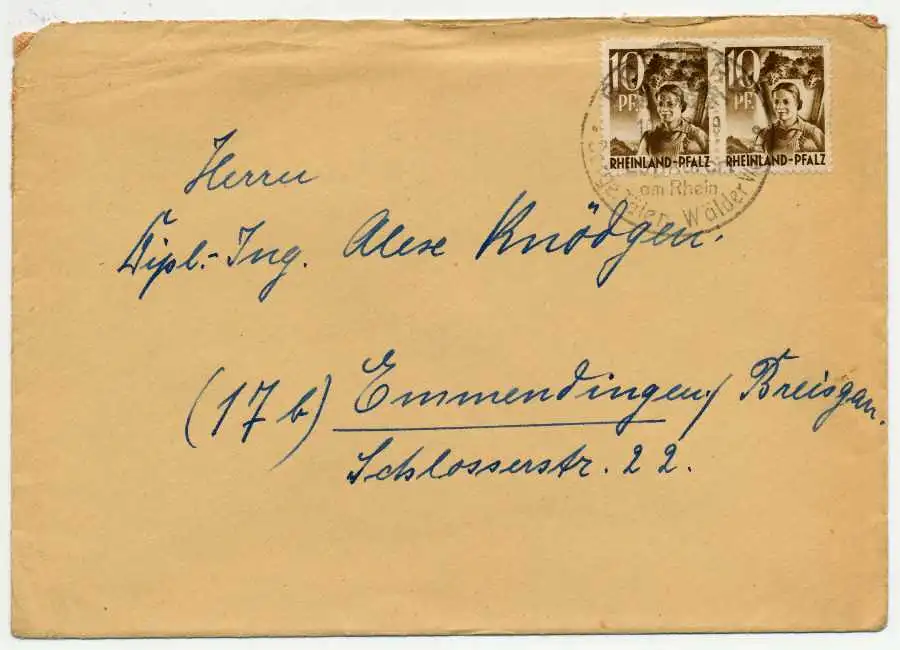 10 10
PF. PF.
RHEINLAND-PFALZ RHEINLAND-PFALZ
am Rhein
Wälder
Herrn
Dipl.-Ing. Alex Knödgen.
(17b) Emmendingen/Breisgau.
Schlosserstr. 22.